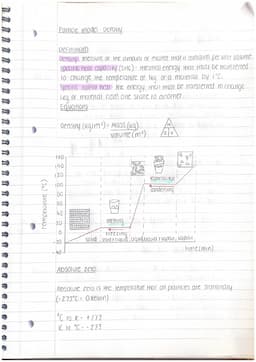 Particle model: Density
Definitions
Density: measure of the amount of matter that is contained per unit volume.
Specific heat capacity (SHC): thermal energy that must be transferred
to change the temperature of 1kg of a material by 1°C.
Specific latent heat: the energy that must be transferred to change
1kg of material from one state to another.
Equations
Density (kg/m³) = mass (kg)
volume (m³)
temperature (°C)
evaporating
condensing
melting
freezing
time (min)
Absolute zero
Absolute zero is the temperature that all particles are stationary
(-273°C = 0 kelvin)
°C to K = +273
K to °C = -273